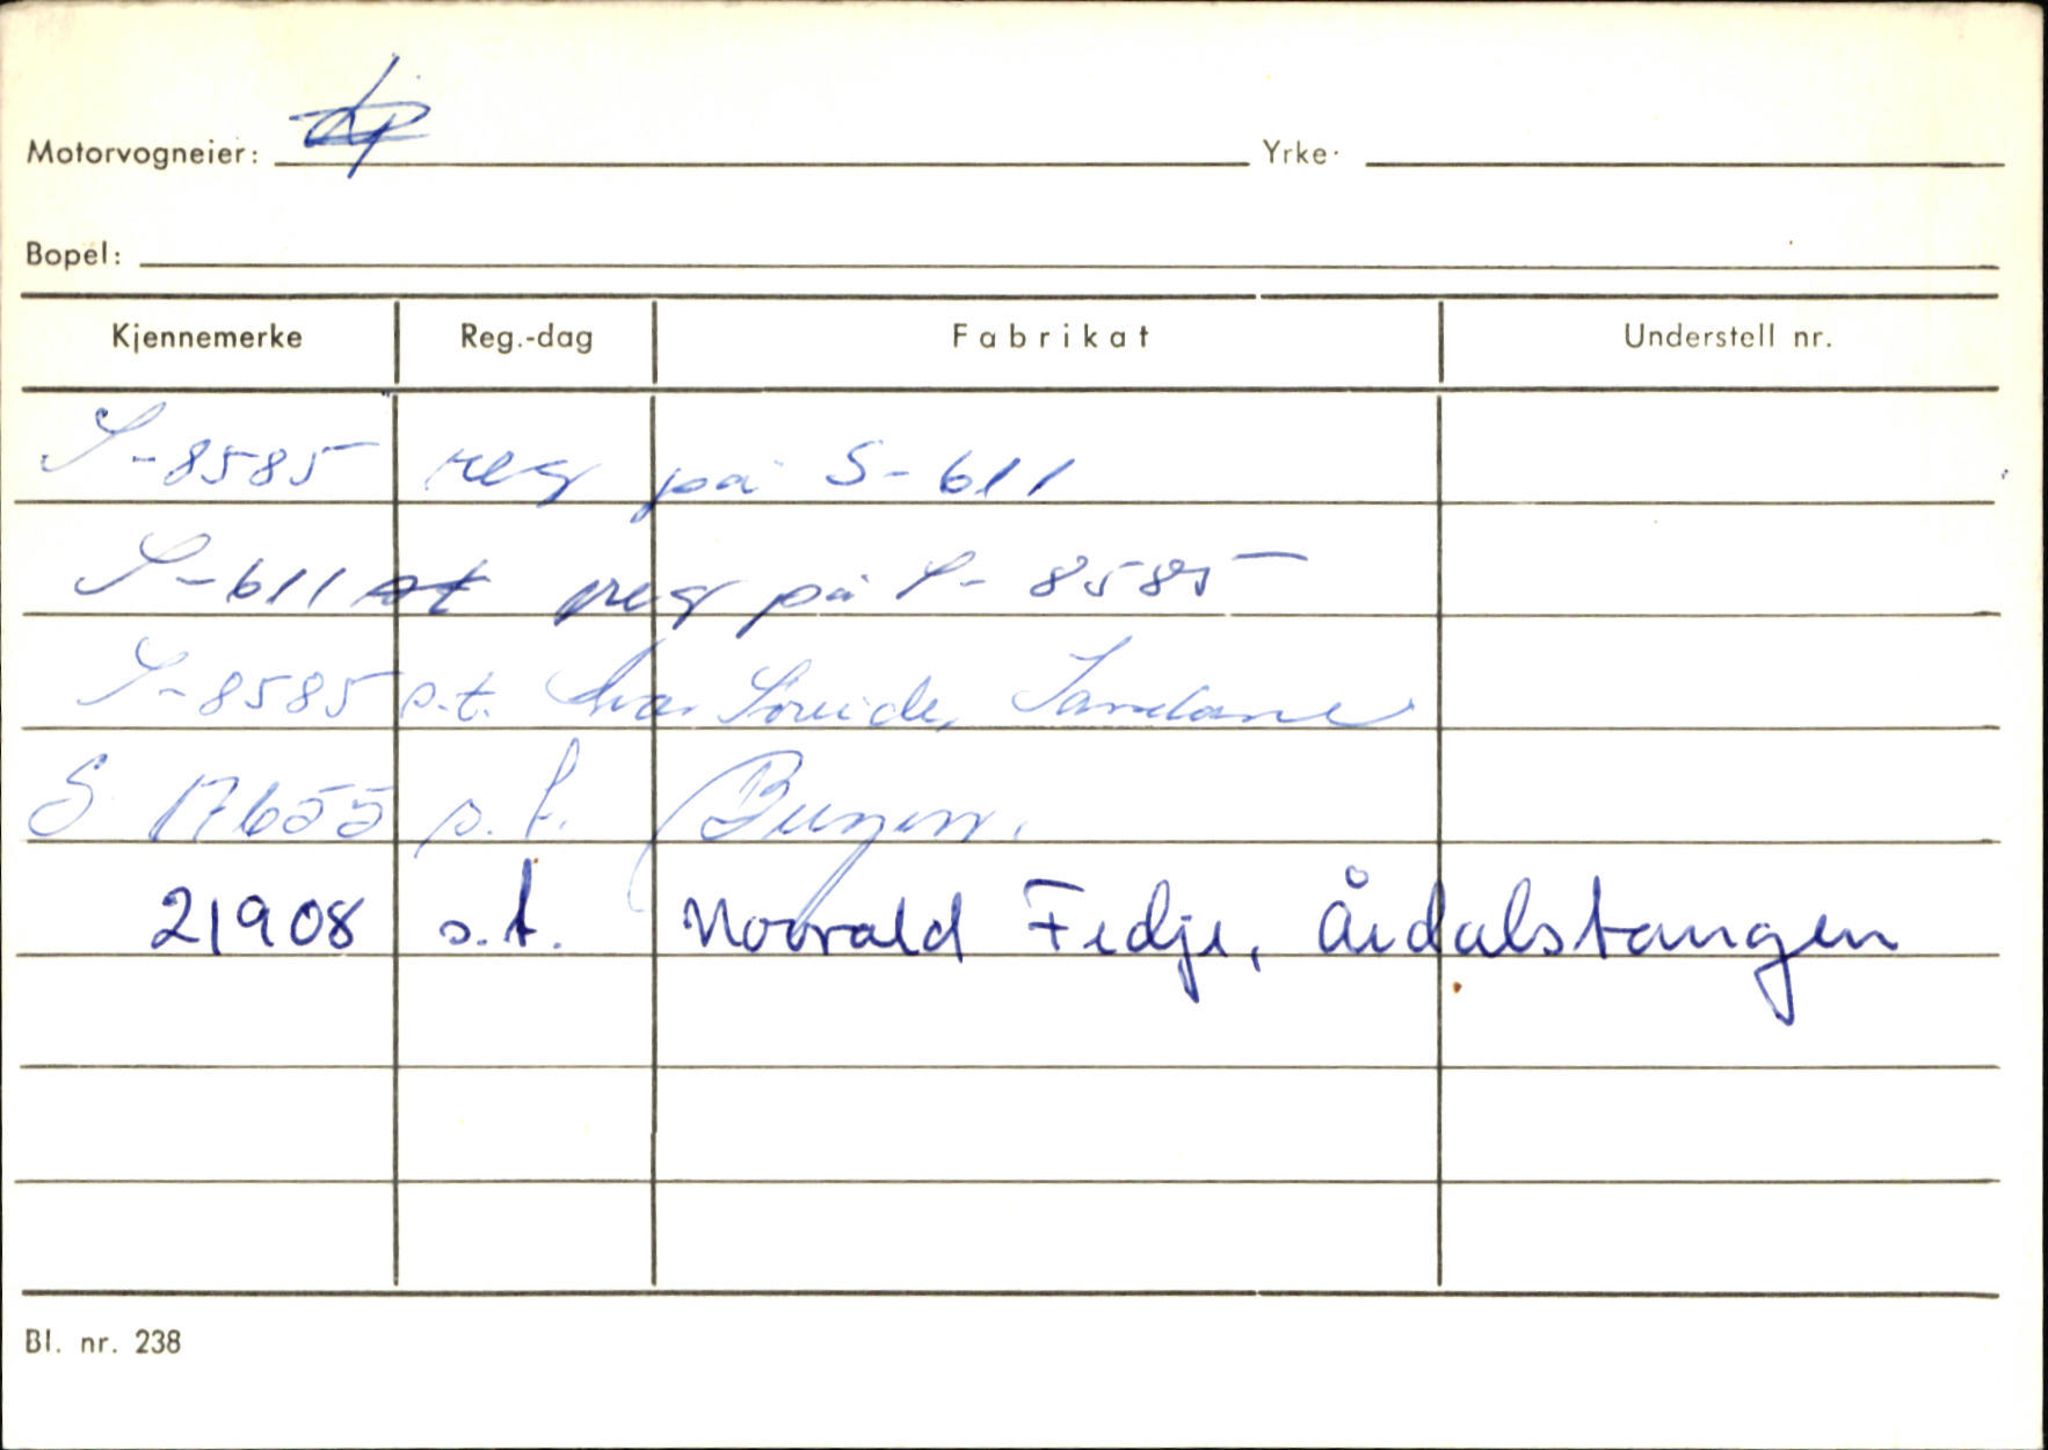 Motorvogneier: Yrke.
Bopel:
Kjennemerke Reg.-dag Fabrikat Understell nr.
S-8585 reg på S-611
S-611 st reg på S-8585
S-8585 s.t. Ivar Sørheide, Sandane
S 17655 s.t. Bergen.
21908 s.t. Norvald Fedje, Årdalstangen
Bl. nr. 238